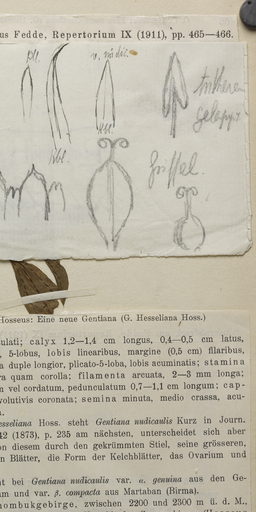 us Fedde, Repertorium IX (1911), pp. 465—466.
Griffel.
Hosseus: Eine neue Gentiana (G. Hesseliana Hoss.)
ulati; calyx 1,2—1,4 cm longus, 0,4—0,5 cm latus,
, 5-lobus, lobis linearibus, margine (0,5 cm) filaribus,
a duple longior, plicato-5-loba, lobis acuminatis; stamina
ra quam corolla; filamenta arcuata, 2—3 mm longa;
m vel cordatum, pedunculatum 0,7—1,1 cm longum; cap-
volutivis coronata; semina minuta, medio crassa, acu-
a.
esseliana Hoss. steht Gentiana nudicaulis Kurz in Journ.
42 (1873), p. 235 am nächsten, unterscheidet sich aber
on diesem durch den gekrümmten Stiel, seine grösseren,
n Blätter, die Form der Kelchblätter, das Ovarium und
ht bei Gentiana nudicaulis var. α. genuina aus den Ge-
am und var. β. compacta aus Martaban (Birma).
hombukgebirge, zwischen 2200 und 2300 m ü. d. M.,